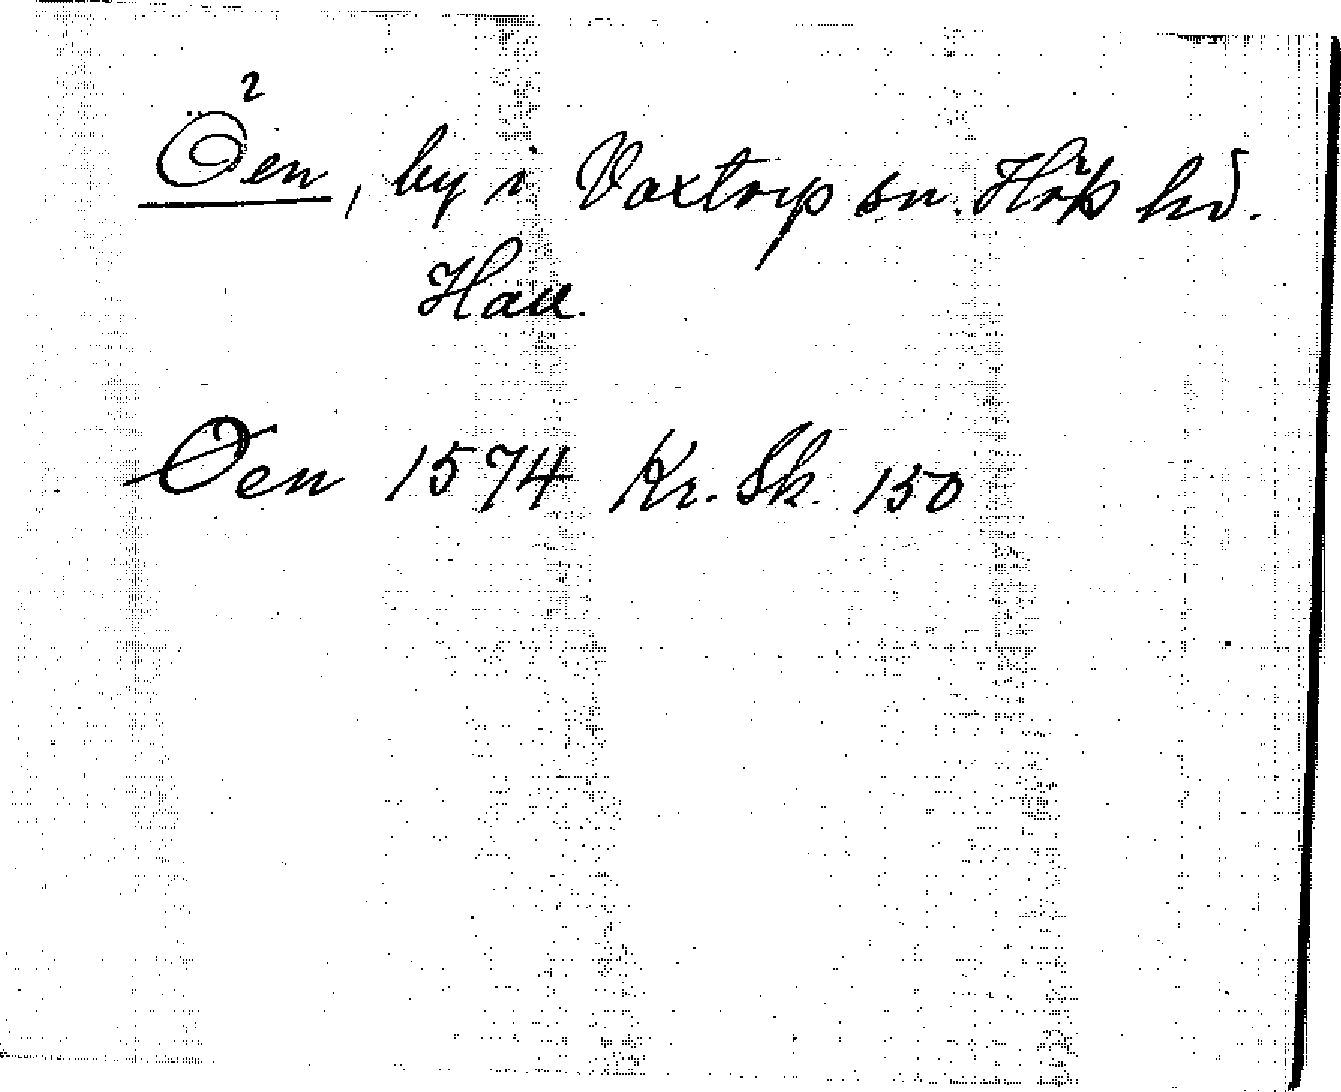 2
Öen, by i Voxtorp sn. Höks hd.
Hall.
Øen 1574 Kr. Sk. 150